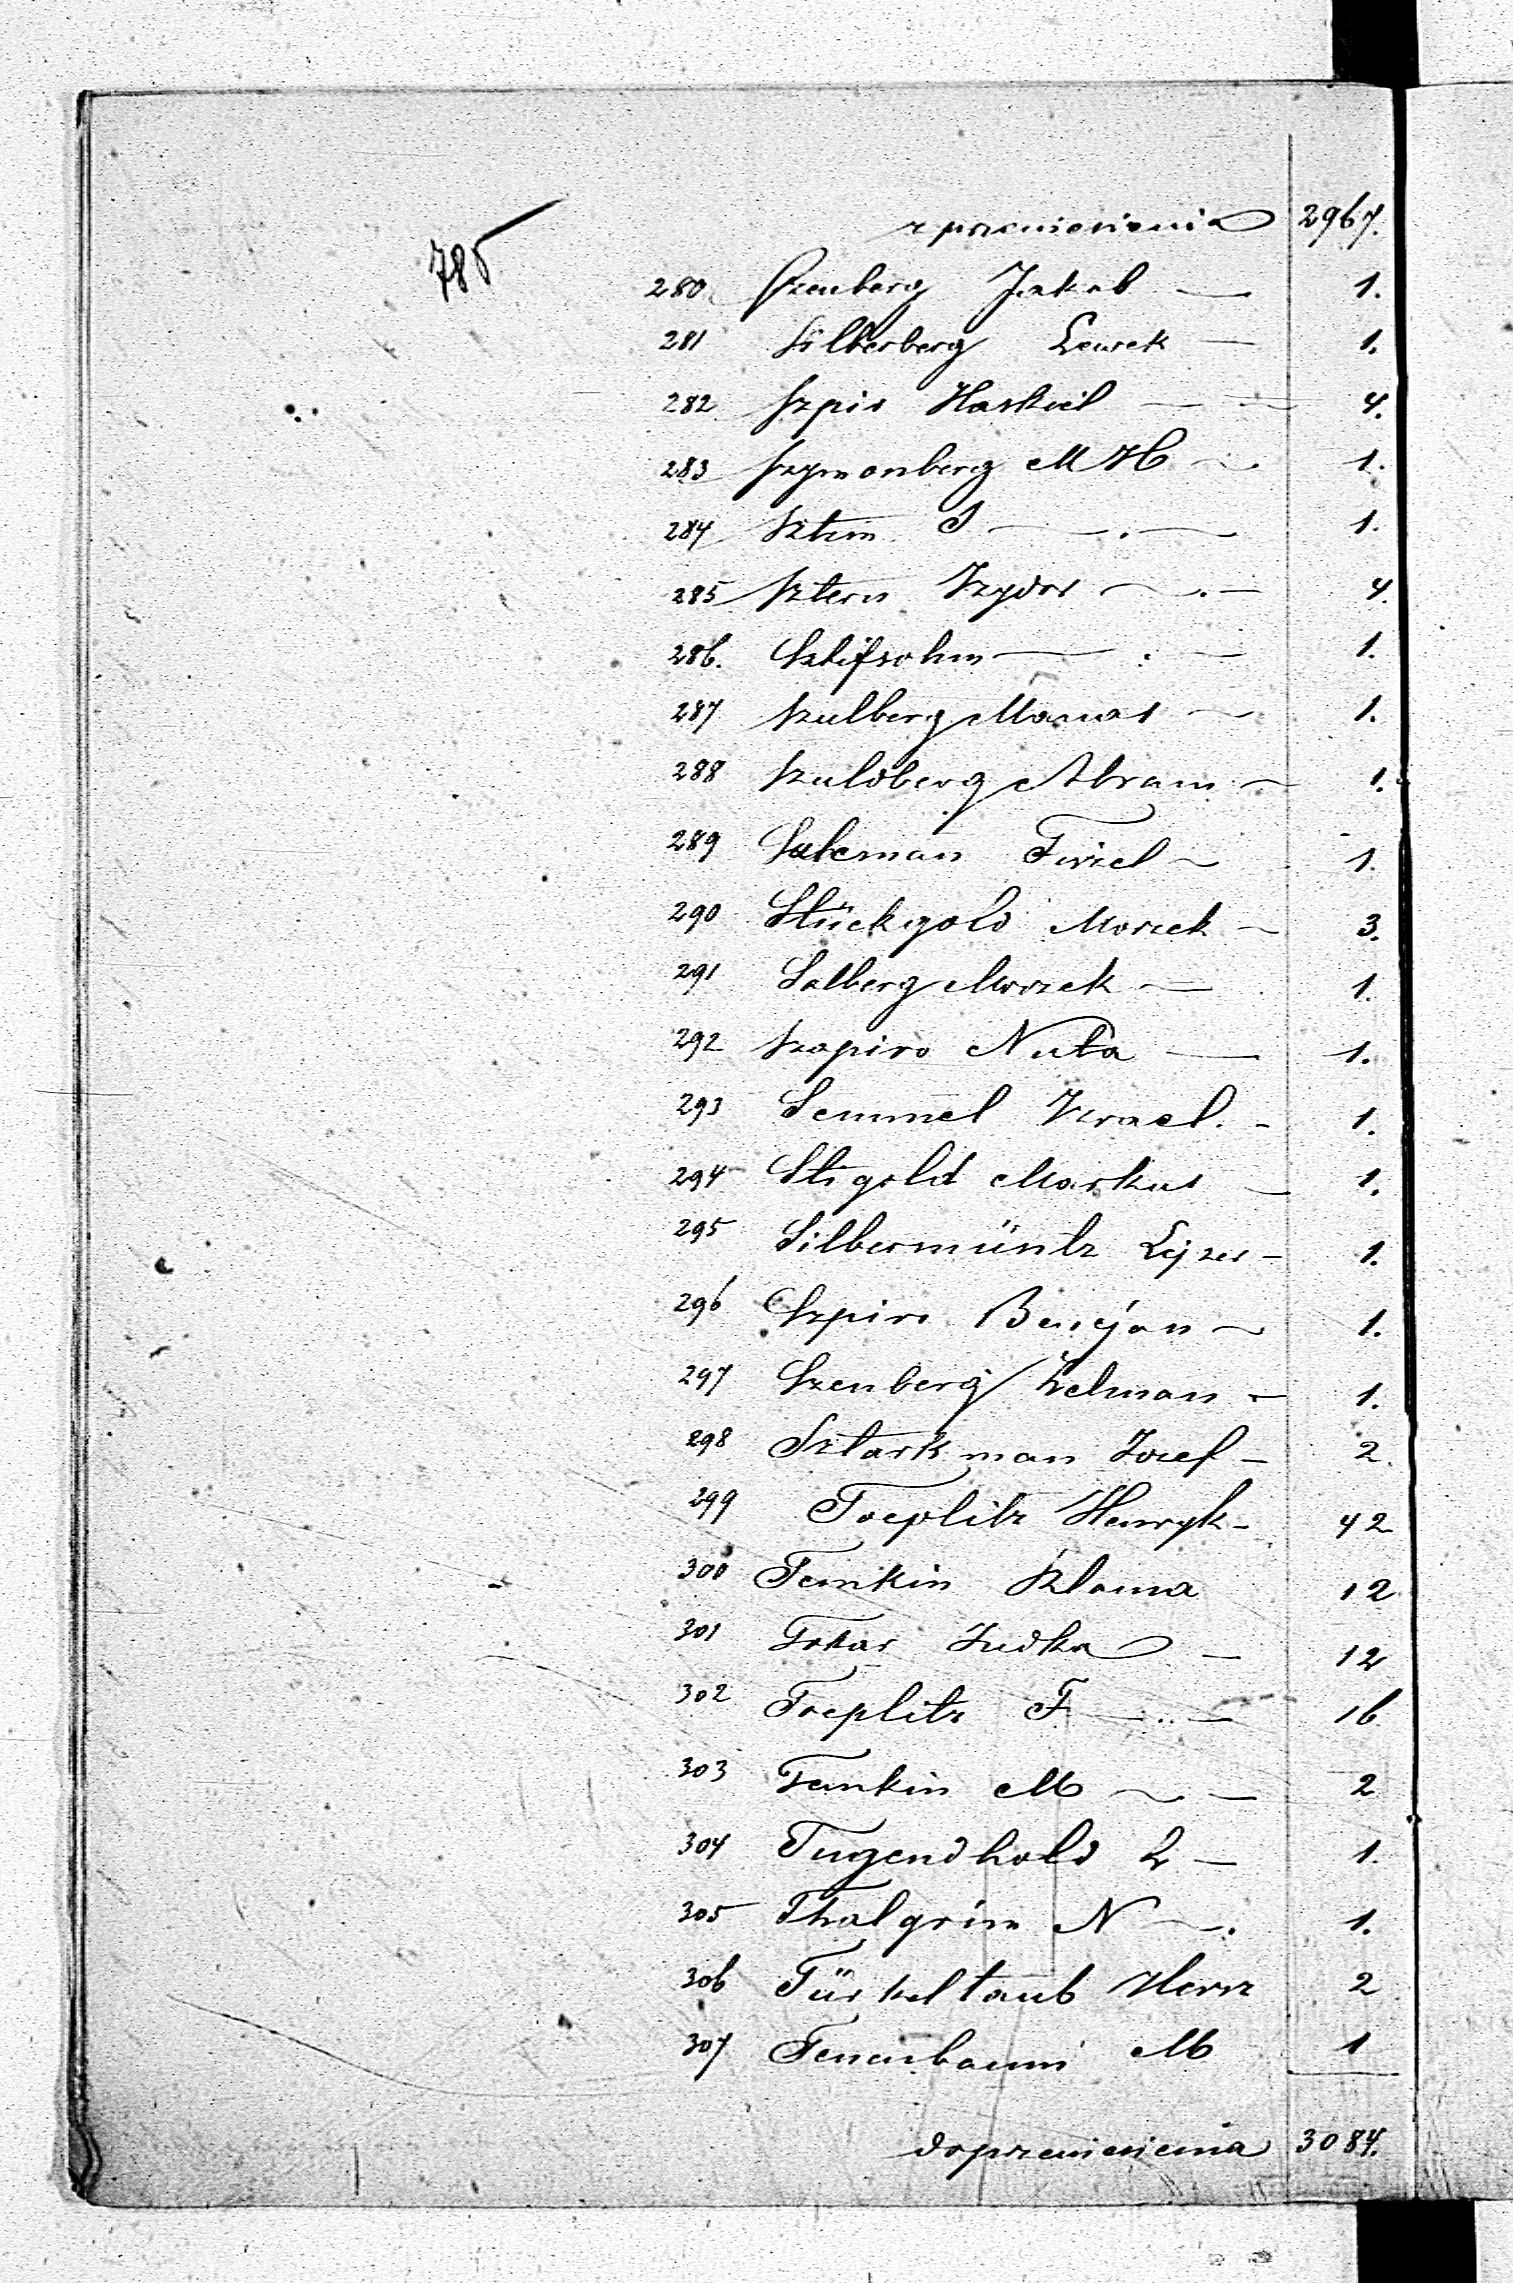 785
z przeniesienia 2967.
280 Szenberg Jakob — 1.
281 Silberberg Lewek — 1.
282 Szpir Haskiel — — 4.
283 Szymonberg M H — 1.
284 Sztern S — . — 1.
285 Sztern Izydor — . — 4.
286. Sztifsohm — . — 1.
287 Szulberg Manas — 1.
288 Szuldberg Abram — 1.
289 Suleman Fiszel — 1.
290 Stückgold Moszek — 3.
291 Salberg Moszek — 1.
292 Szapiro Nuta — 1.
293 Semmel Izrael. - 1.
294 Stigold Markus — 1.
295 Silbermüntz Lejzer - 1.
296 Szpiro Benejan — 1.
297 Szenberg Zelman — 1.
298 Sztarkman Jozef — 2.
299 Toeplitz Henryk - 42
300 Temkin Szloma 12
301 Tokar Judka — 12
302 Toeplitz F — .. — 16
303 Temkin M — — 2
304 Tugendhold L — 1.
305 Thalgrün N — . 1.
306 Türkeltaub Hersz 2
307 Tenenbaum M 1
do przeniesienia 3084.